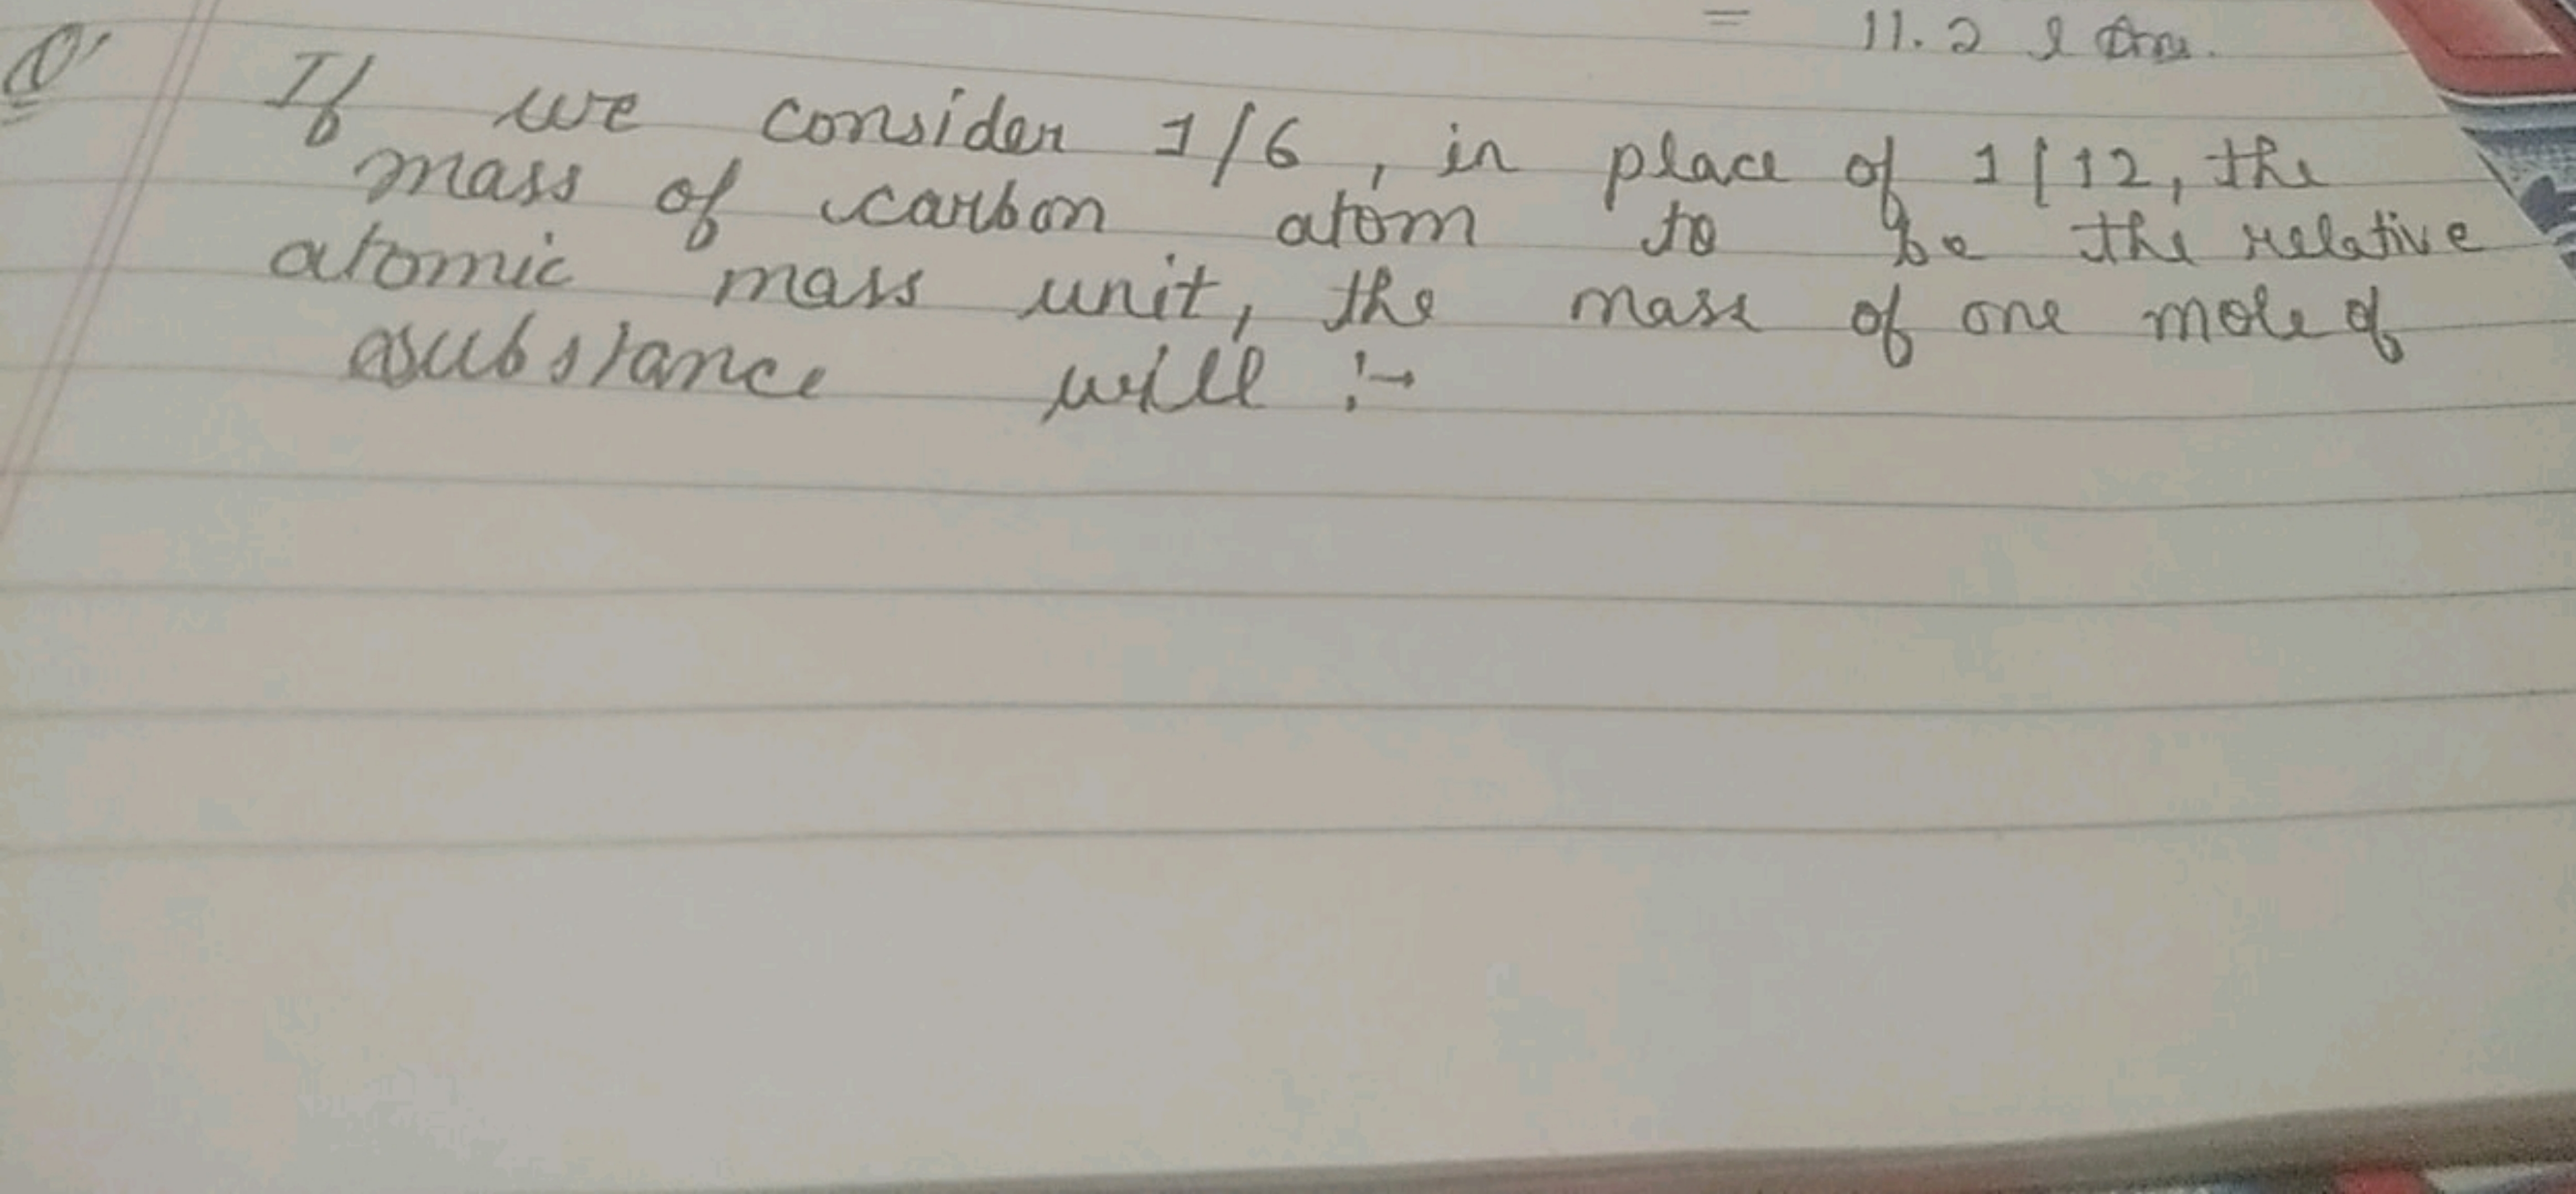 = 11.2 l Ans.
Q' If we consider 1/6, in place of 1/12, the
mass of carbon atom to be the relative
atomic mass unit, the mass of one mole of
asubstance will :-